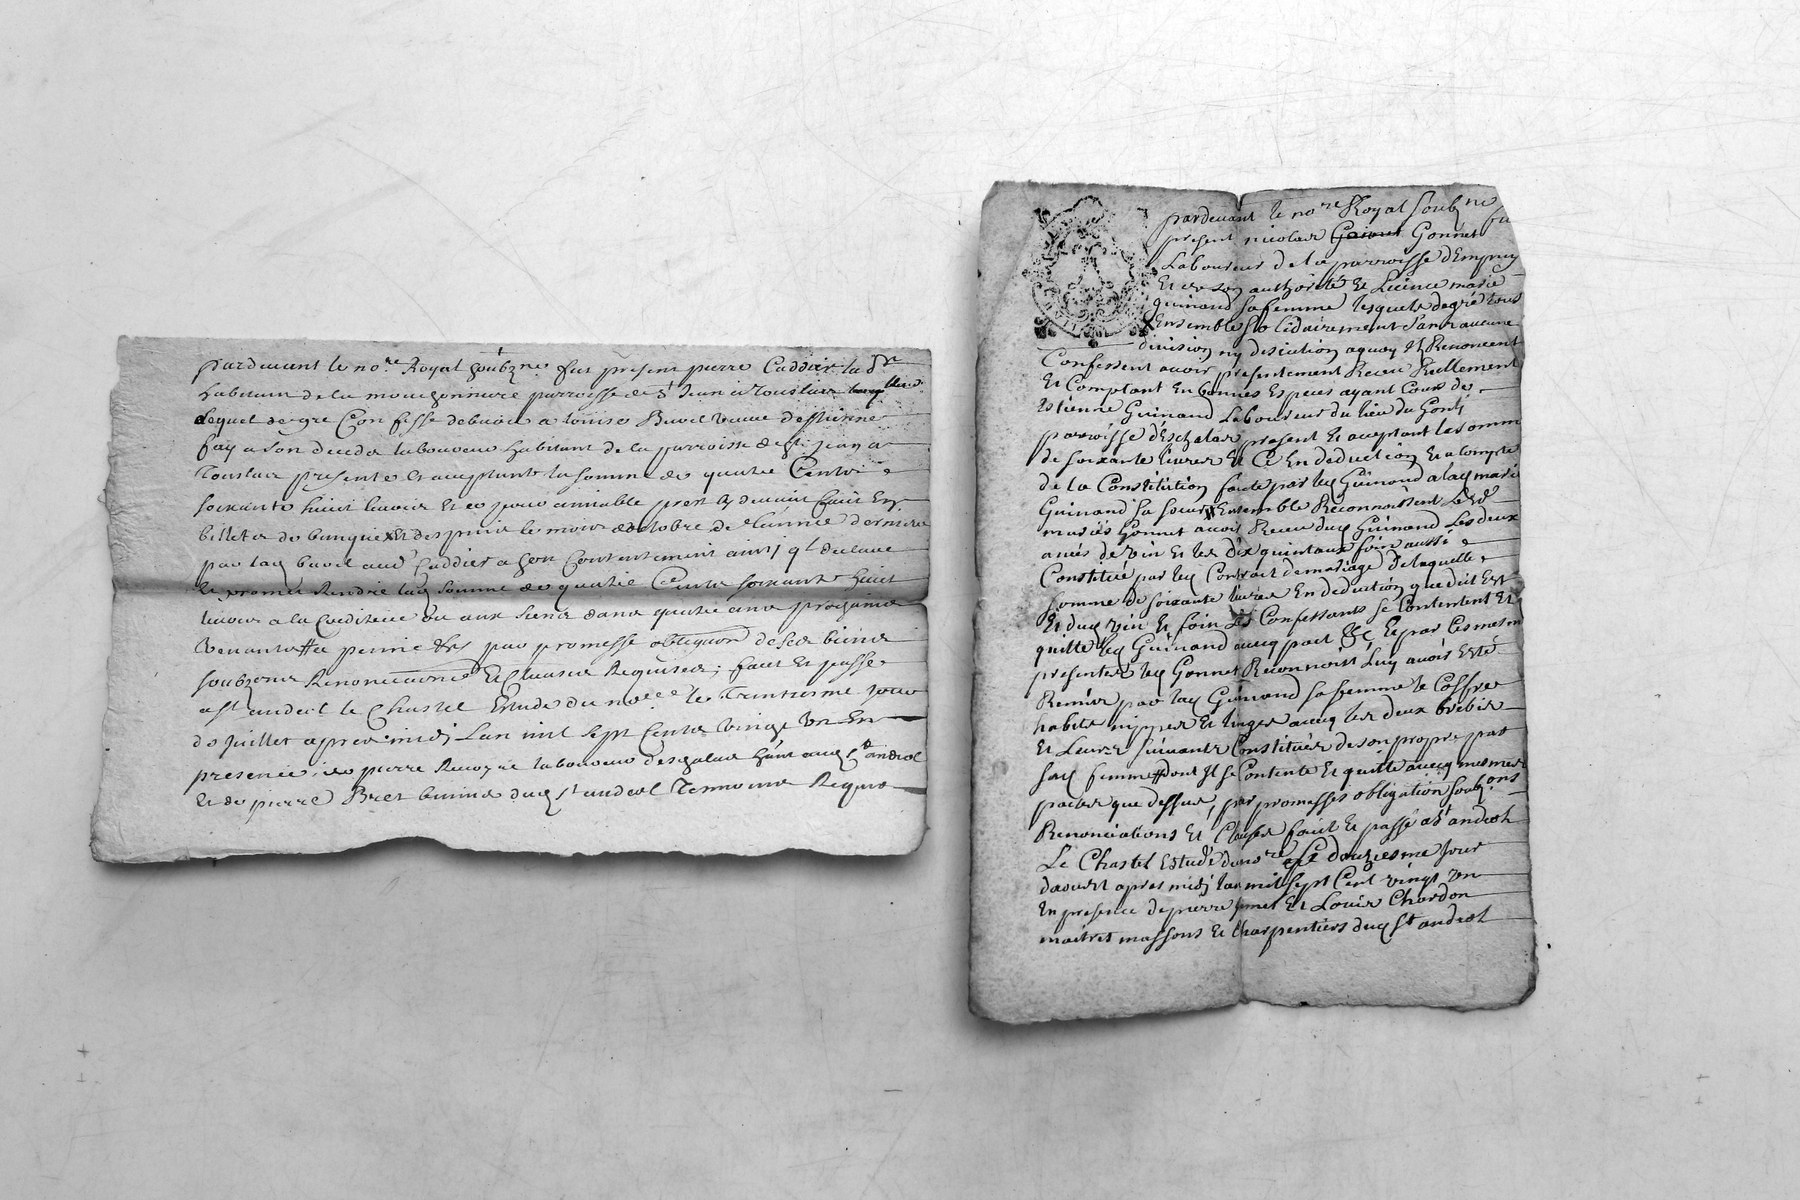 pardevant le no.re Royal soubz.né fut present pierre Caddier la d.r
habitant de la parroisse de St Jean a Touslas
Lequel de gre Confesse debuoir a Louise Buvel veuve destienne
fay a son deceda laboureur habitant de la parroisse de St Jean a
Touslas presente et acceptant la somme de quatre Cents
soixante huict livres et ce pour amiable prest cy devant faict En
billets de banque et despuis le mois doctobre de l'année derniere
par lad aud Caddier a son Contentement ainsj ql declare
promet Rendre lad somme de quatre Cents soixante huict
livres a la Creditrice ou aux siens dans quatre ans prochains
venants a peine &c par promesse obligaon de ses biens
soubzons Renonciaons Et Clauses Requises; faict Et passé
a St andeol le Chastel Estude du no.re le Trentiesme jour
de Juillet apres midj Lan mil sept Cents vingt Un En
presence de pierre laboureur deschalas hant aud St andeol
Et de pierre Bret dud St andeol Tesmoins Requis
pardevant le no.re Royal soubz.né fu
present nicolas Gonnet
Laboureur de la parroisse d'Empuy
Et de son authorité Et Licence marie
guinand sa femme lesquels de gré tous
Ensemble solidairement sans aucune
division ny discution a quoy Ils Renoncent
Confessent avoir presentement Receu Reellement
Et Comptant En bonnes Especes ayant Cours de
Estienne Guinand Laboureur du lieu du Gont
parroisse d'Eschalas present Et acceptant la somme
de soixante livres Et Ce En deduction Et a Compte
de la Constitution faite par led Guinand a lad marie
Guinand sa soeur Ensemble Reconnoissent Lesd
mariés Gonnet avoir Receu dud Guinand Les deux
anées de vin Et les dix quintaux foin aussi
Constitué par led Contract de mariage De laquelle
somme de soixante livres En deduction que dict Est
Et dud vin Et foin Les Confessants se Contentent Et
quitte led Guinand avecq pact &c Et par Ces mesm
presentes led Gonnet Reconnoist Luy avoir Esté
Remis par lad Guinand sa femme le Coffre
habits nippes Et linges avecq les deux brebis
Et Leurs suivants Constitués de son propre par
sad femme dont Il se Contente Et quitte avecq mesmes
pactes que dessus, par promesses obligation soubz.ons
Renonciations Et Clauses faict Et passé a St andeol
Le Chastel Estude du no.re le douziesme Jour
daoust apres midj lan mil sept Cent vingt Un
En presence de pierre Et Louis Chardon
maitres massons Et Charpentiers dud St andeol